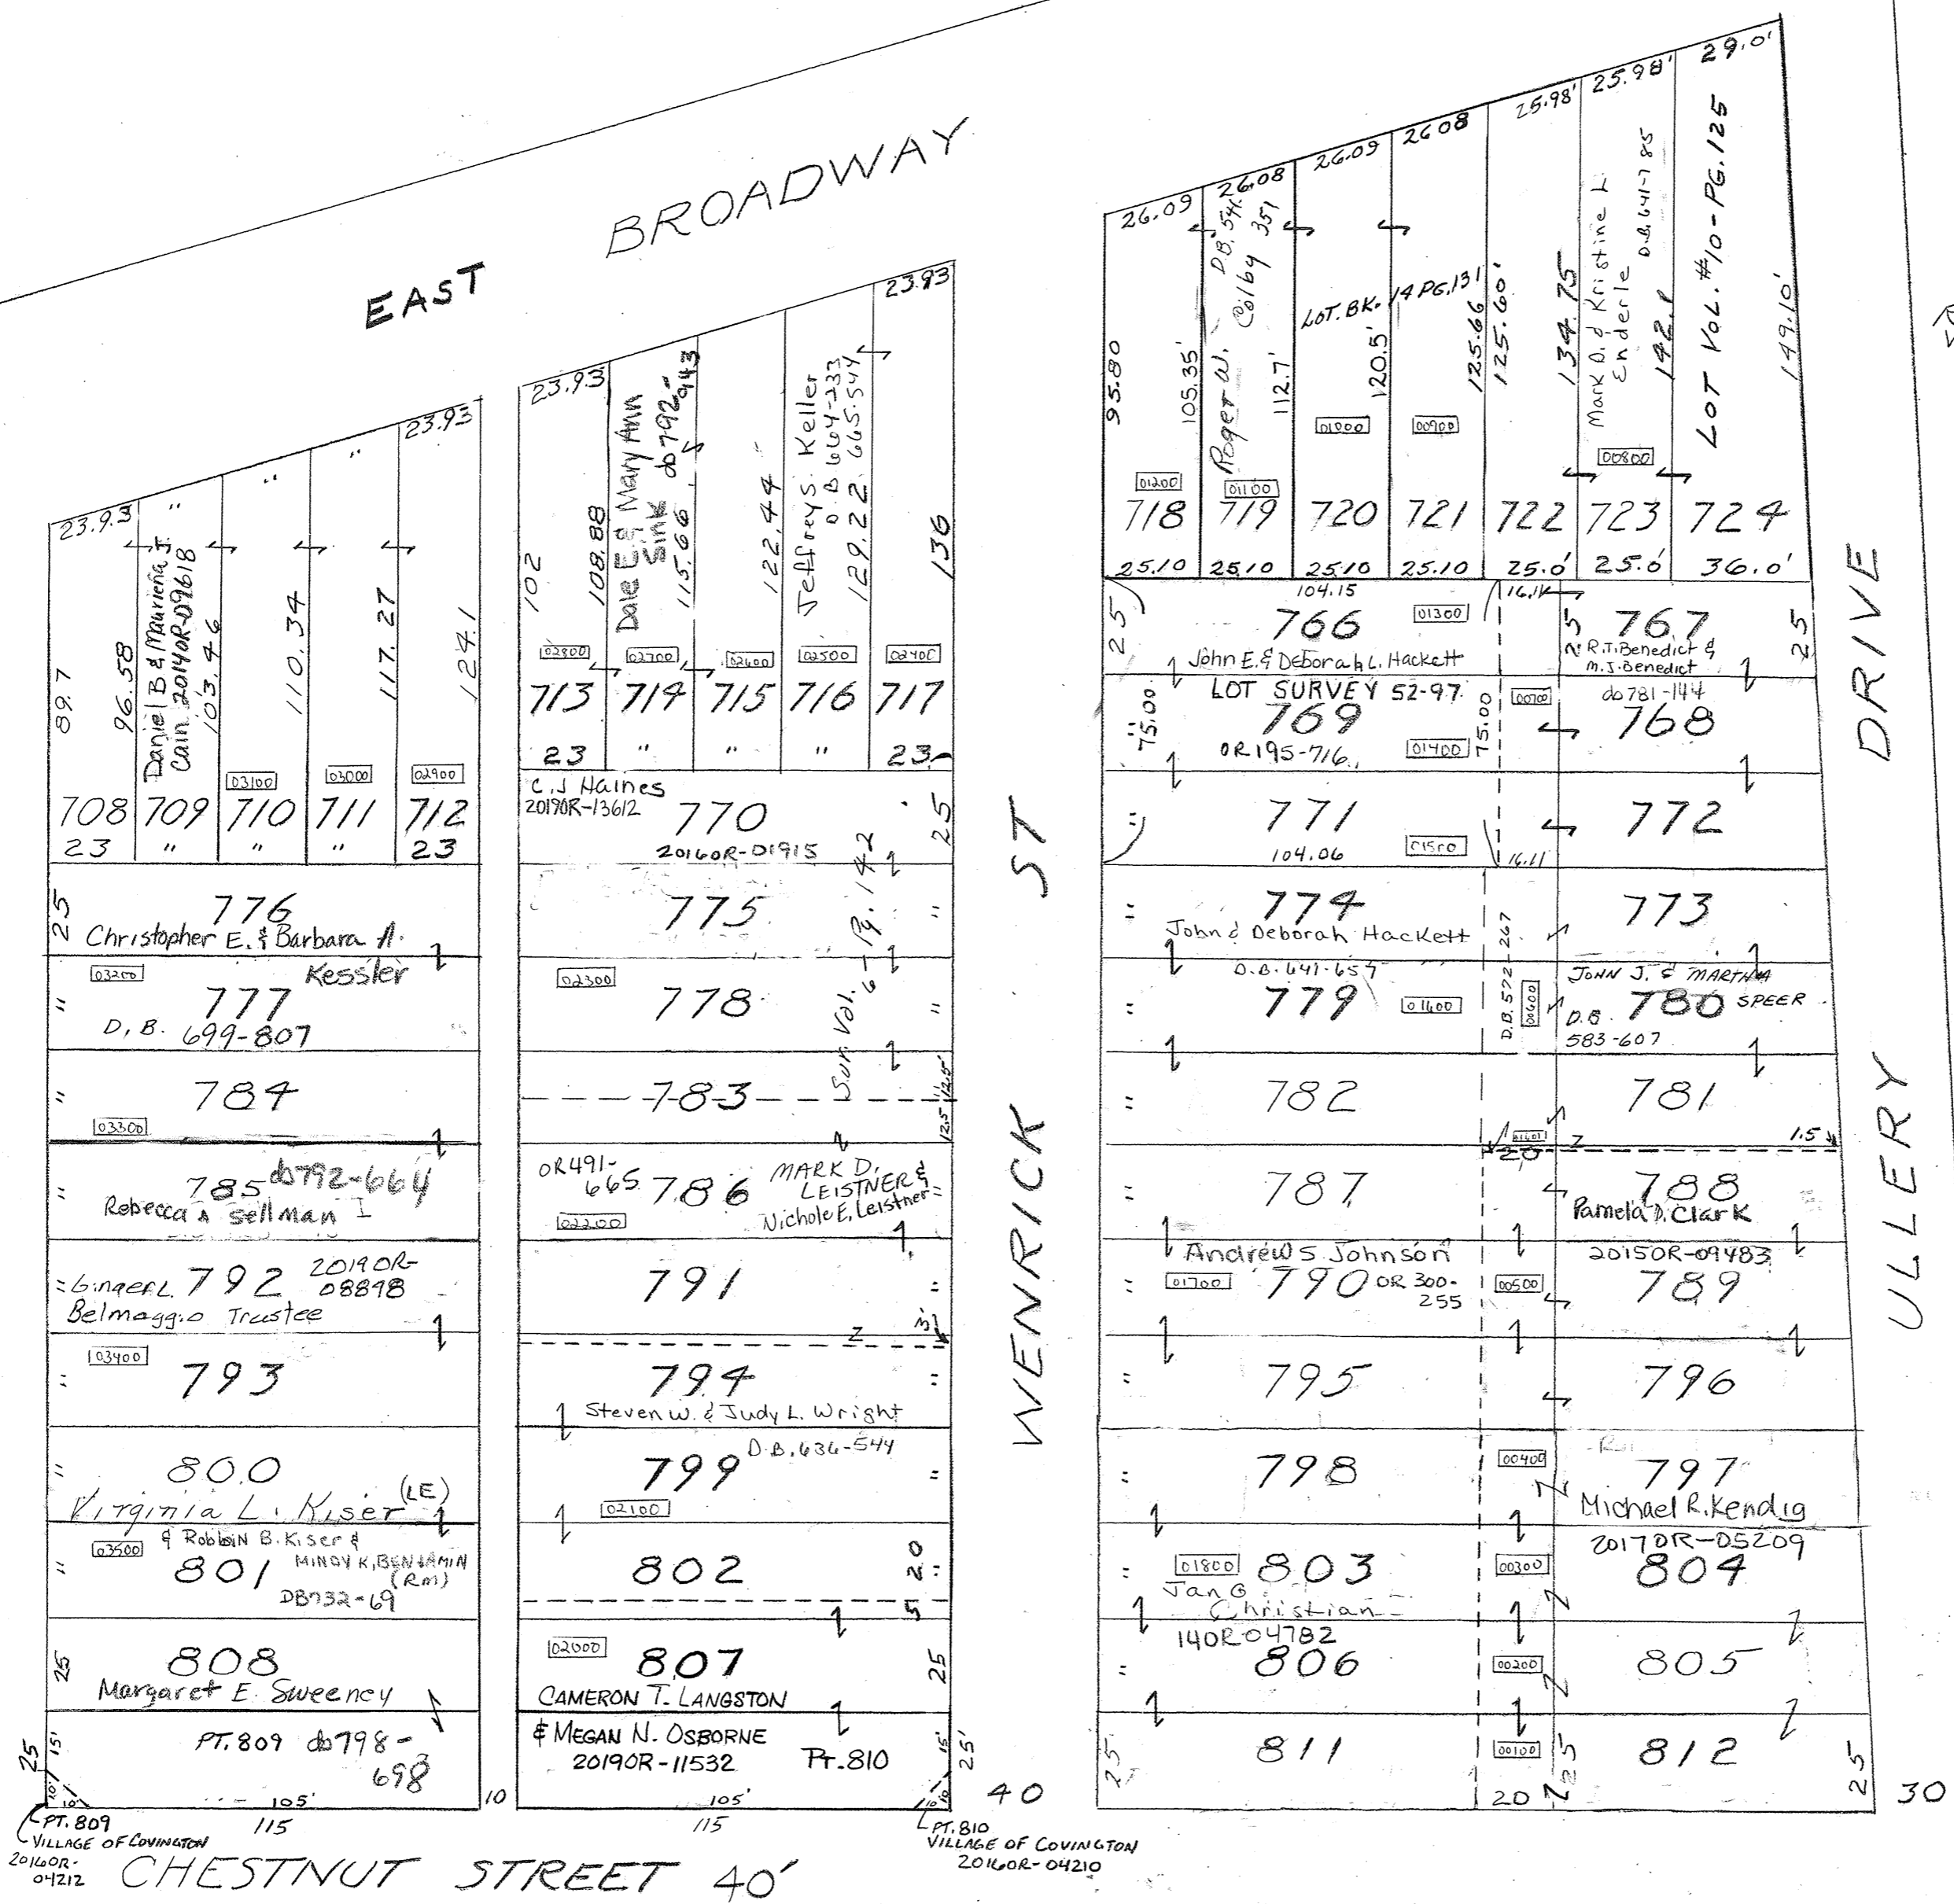 EAST BROADWAY
WENRICK ST
ULLERY DRIVE
CHESTNUT STREET 40'
23.93 " " " 23.93
89.7 96.58 103.46 110.34 117.27 124.1
Daniel B & Mauriena J.
Cain 20140R-09618
03100 03000 02900
708 709 710 711 712
23 " " " 23
25 776
Christopher E. & Barbara A.
Kessler
03200
" 777
D.B. 699-807
" 784
03300
" 785 db792-664
Rebecca A Sellman
" Ginger L. 792 20190R-
08898
Belmaggio Trustee
03400
" 793
" 800
Virginia L. Kiser (LE)
& Robbin B. Kiser &
03500
" 801 MINDY K, BENJAMIN
(Rm)
DB732-69
25 808
Margaret E. Sweeney
PT. 809 db798-
698
25 15' 10' 10'
105' 10
115
PT. 809
VILLAGE OF COVINGTON
20160R-
04212
23.93 23.93
102 108.88 115.66 122.44 129.22 136
Dale E & Mary Ann
Sink db792-
943
Jeffrey S. Keller
D.B 664-233
665-544
02800 02700 02600 02500 02400
713 714 715 716 717
23 " " " 23
C.J Haines
20190R-13612
770 25
20160R-01915
Sur. Vol. 6-Pg. 142
775 "
02300
778 "
783 12.5' 12.5'
OR491-
665 786
MARK D.
LEISTNER &
Nichole E. Leistner "
02200
791 "
3'
794 "
Steven W. & Judy L. Wright
D.B. 636-544
799 "
02100
802 20 "
5
02000
807 25
CAMERON T. LANGSTON
& MEGAN N. OSBORNE
20190R-11532 PT. 810
15' 25' 10' 10'
105'
115
40
PT. 810
VILLAGE OF COVINGTON
20160R-04210
26.09 26.08 26.09 26.08 25.98' 25.98' 29.0'
95.80 105.35' 112.7' 120.5' 125.66 125.60' 134.75 142.1 149.10'
Roger W. Colby
D.B. 541-
351
LOT. BK. 14 PG. 131
Mark D. & Kristine L
Enderle
D.B. 641-785
LOT VOL. #10-PG. 125
01200 01100 01000 00900 00800
718 719 720 721 722 723 724
25.10 25.10 25.10 25.10 25.0' 25.0' 36.0'
104.15 16.11
25 766 01300 25 767 25
John E. & Deborah L. Hackett
R.T. Benedict &
M.J. Benedict
LOT SURVEY 52-97
db781-144
" 75.00 769 75.00 00700 768
OR195-716 01400
" 771 772
104.06 01500 16.11
" 774 773
John & Deborah Hackett
D.B. 641-657
D.B. 572-267
" 779 01600 00600
JOHN J. & MARTHA
780 SPEER
D.B.
583-607
" 782 781
01601 1.5
20
" 787 788
Pamela D. Clark
Andrew S. Johnson
20150R-09483
01700 " 790 OR 300-
255
00500 789
" 795 796
" 798 00400 797
Michael R. Kendig
20170R-05209
" 01800 803 00300 804
Jan G
Christian
140R04782
" 806 00200 805
25 811 00100 25 812 25
20
30